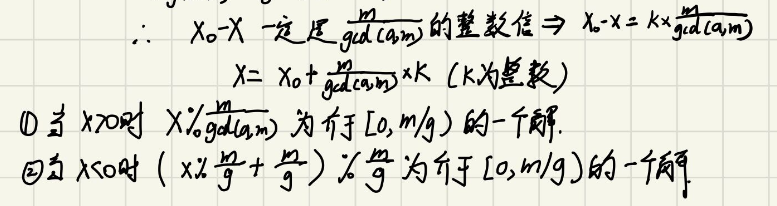 ∴ X₀-X 一定是 m/gcd(a,m) 的整数倍 ⇒ X₀-X = K× m/gcd(a,m)
X = X₀ + m/gcd(a,m) ×K (K为整数)
① 当 X>0时 X% m/gcd(a,m) 为介于 [0, m/g) 的一个解.
② 当 X<0时 ( X% m/g + m/g ) % m/g 为介于 [0, m/g) 的一个解.